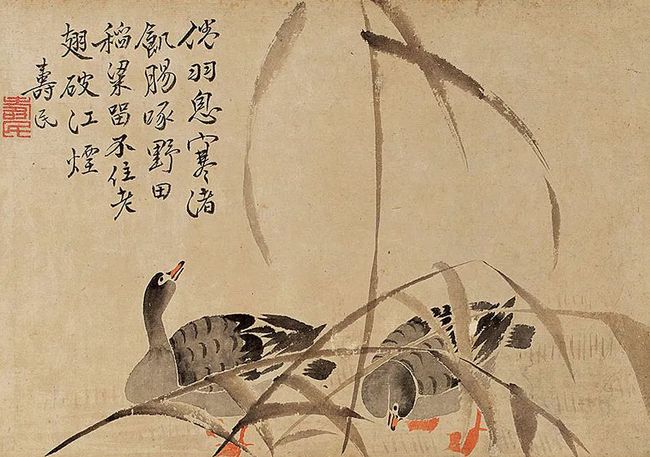 倦羽息寒渚
飢腸啄野田
稻粱留不住老
翅破江煙
壽民
壽民